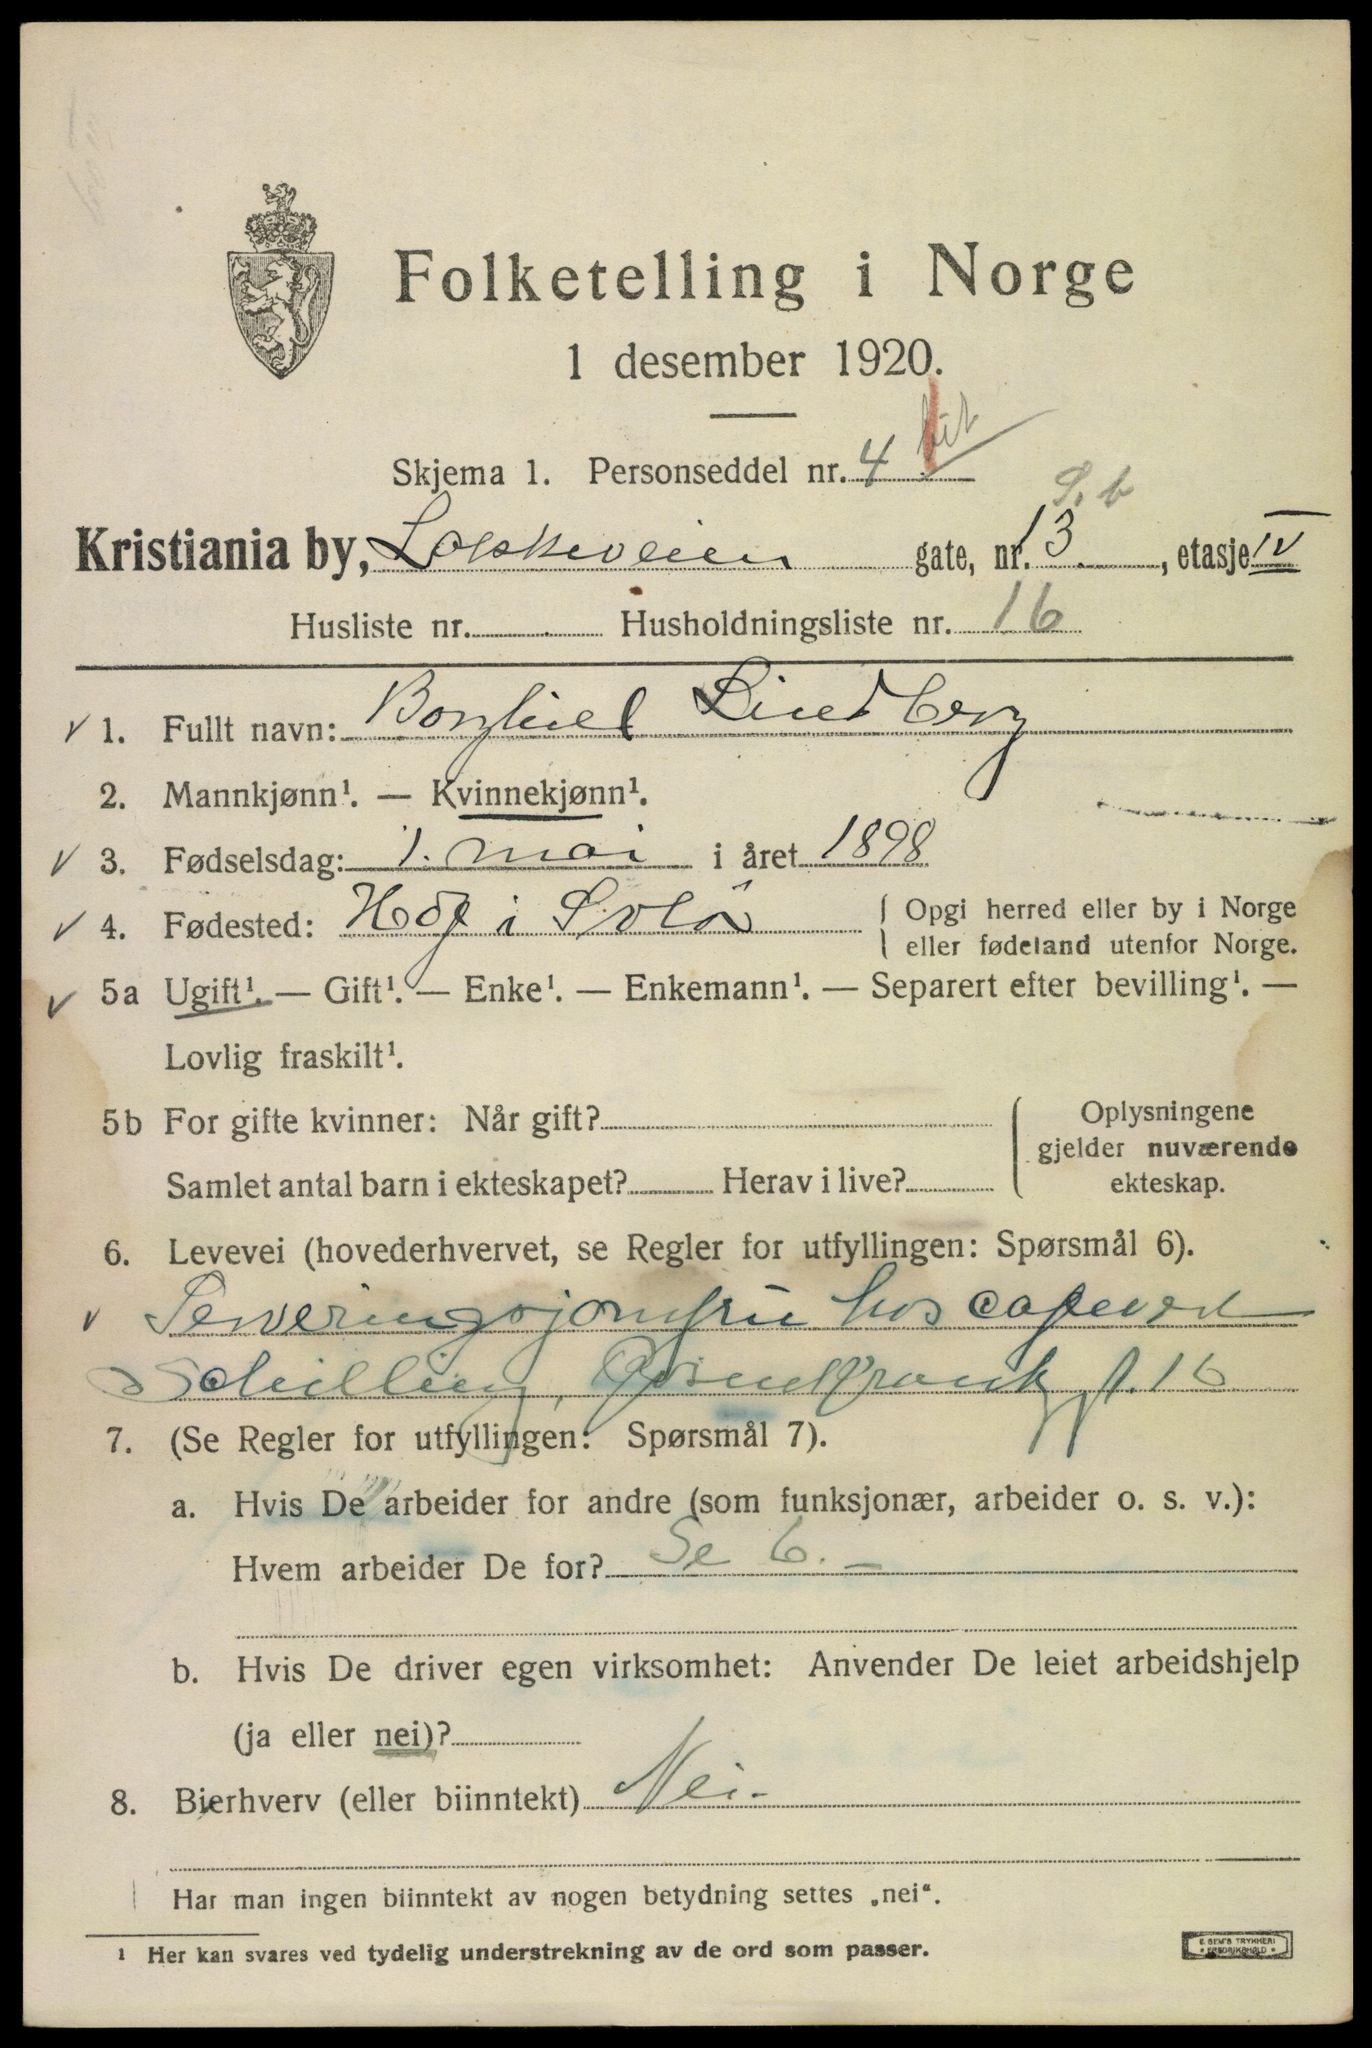 Folketelling i Norge
1 desember 1920.
Skjema 1. Personseddel nr. 4
Kristiania by, Løkkeveien gate, nr. 13 S. b, etasje IV
Husliste nr. Husholdningsliste nr. 16
1. Fullt navn: Borghild Lindberg
2. Mannkjønn¹. — Kvinnekjønn¹.
3. Fødselsdag: 1. mai i året 1898
4. Fødested: Hof i Solør { Opgi herred eller by i Norge
eller fødeland utenfor Norge.
5a Ugift¹. — Gift¹. — Enke¹. — Enkemann¹. — Separert efter bevilling¹. —
Lovlig fraskilt¹.
5b For gifte kvinner: Når gift? { Oplysningene
gjelder nuværende
Samlet antal barn i ekteskapet? Herav i live? ekteskap.
6. Levevei (hovederhvervet, se Regler for utfyllingen: Spørsmål 6).
Serveringsjomfru hos
Schilling, 16
7. (Se Regler for utfyllingen: Spørsmål 7).
a. Hvis De arbeider for andre (som funksjonær, arbeider o. s. v.):
Hvem arbeider De for? Se 6. —
b. Hvis De driver egen virksomhet: Anvender De leiet arbeidshjelp
(ja eller nei)?
8. Bierhverv (eller biinntekt) Nei-
Har man ingen biinntekt av nogen betydning settes „nei“.
¹ Her kan svares ved tydelig understrekning av de ord som passer.
E. SEM'S TRYKKERI
* FREDRIKSHALD *